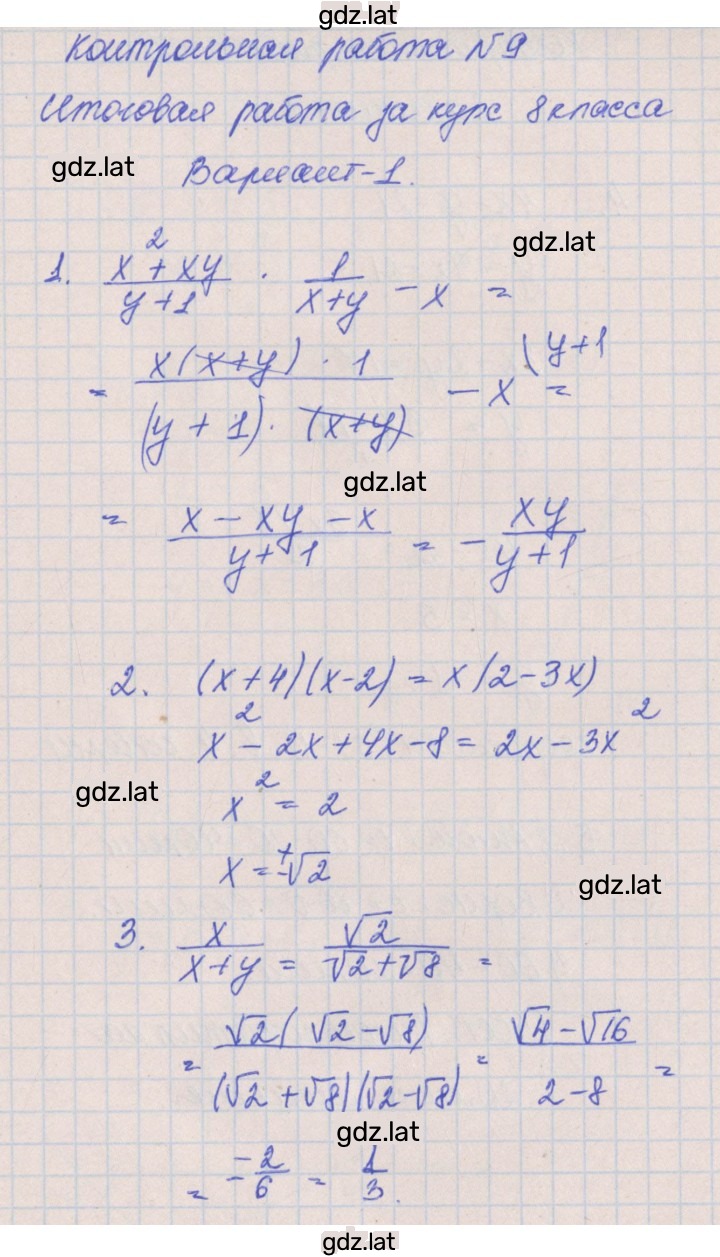 gdz.lat
Контрольная работа №9
Итоговая работа за курс 8 класса
gdz.lat
Вариант-1.
gdz.lat
1. (x² + xy)/(y + 1) · 1/(x+y) − x =
= (x(x+y) · 1)/((y + 1) · (x+y)) − x (y+1 =
gdz.lat
= (x − xy − x)/(y + 1) = − xy/(y + 1)
2. (x+4)(x-2) = x(2-3x)
x² − 2x + 4x − 8 = 2x − 3x²
gdz.lat
x² = 2
x = ±√2
gdz.lat
3. x/(x+y) = √2/(√2+√8) =
= √2(√2−√8)/(√2+√8)(√2−√8) = (√4−√16)/(2−8) =
gdz.lat
= −2/−6 = 1/3.
gdz.lat